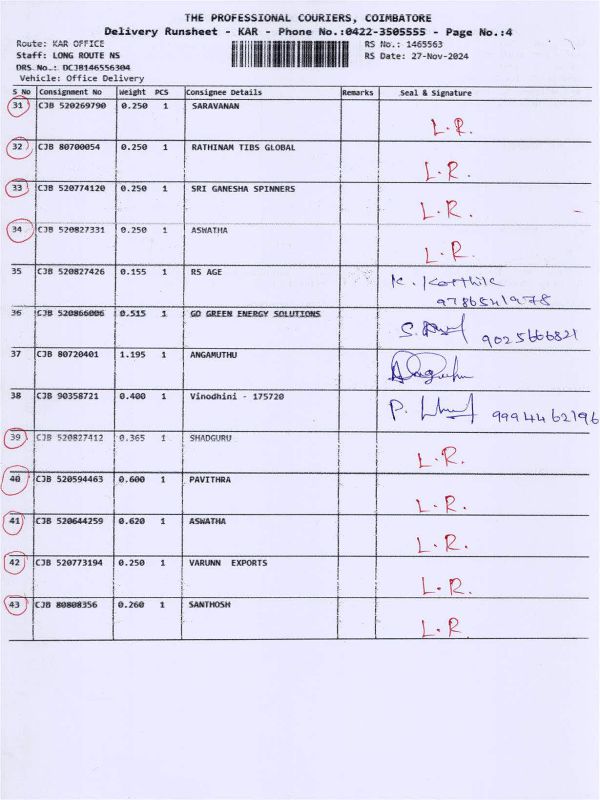 THE PROFESSIONAL COURIERS, COIMBATORE
Delivery Runsheet - KAR - Phone No.:0422-3505555 - Page No.:4
Route: KAR OFFICE RS No.: 1465563
Staff: LONG ROUTE NS RS Date: 27-Nov-2024
DRS No.: DCJB146556304
Vehicle: Office Delivery
S No Consignment No Weight PCS Consignee Details Remarks Seal & Signature
31 CJB 520269790 0.250 1 SARAVANAN
L.R.
32 CJB 80700054 0.250 1 RATHINAM TIBS GLOBAL
L.R.
33 CJB 520774120 0.250 1 SRI GANESHA SPINNERS
L.R.
34 CJB 520827331 0.250 1 ASWATHA
L.R.
35 CJB 520827426 0.155 1 RS AGE
K. Karthik
9786541978
36 CJB 520866006 0.515 1 GO GREEN ENERGY SOLUTIONS
S. 9025666821
37 CJB 80720401 1.195 1 ANGAMUTHU
38 CJB 90358721 0.400 1 Vinodhini - 175720
P. 9994462196
39 CJB 520827412 0.365 1 SHADGURU
L.R.
40 CJB 520594463 0.600 1 PAVITHRA
L.R.
41 CJB 520644259 0.620 1 ASWATHA
L.R.
42 CJB 520773194 0.250 1 VARUNN EXPORTS
L.R.
43 CJB 80808356 0.260 1 SANTHOSH
L.R.